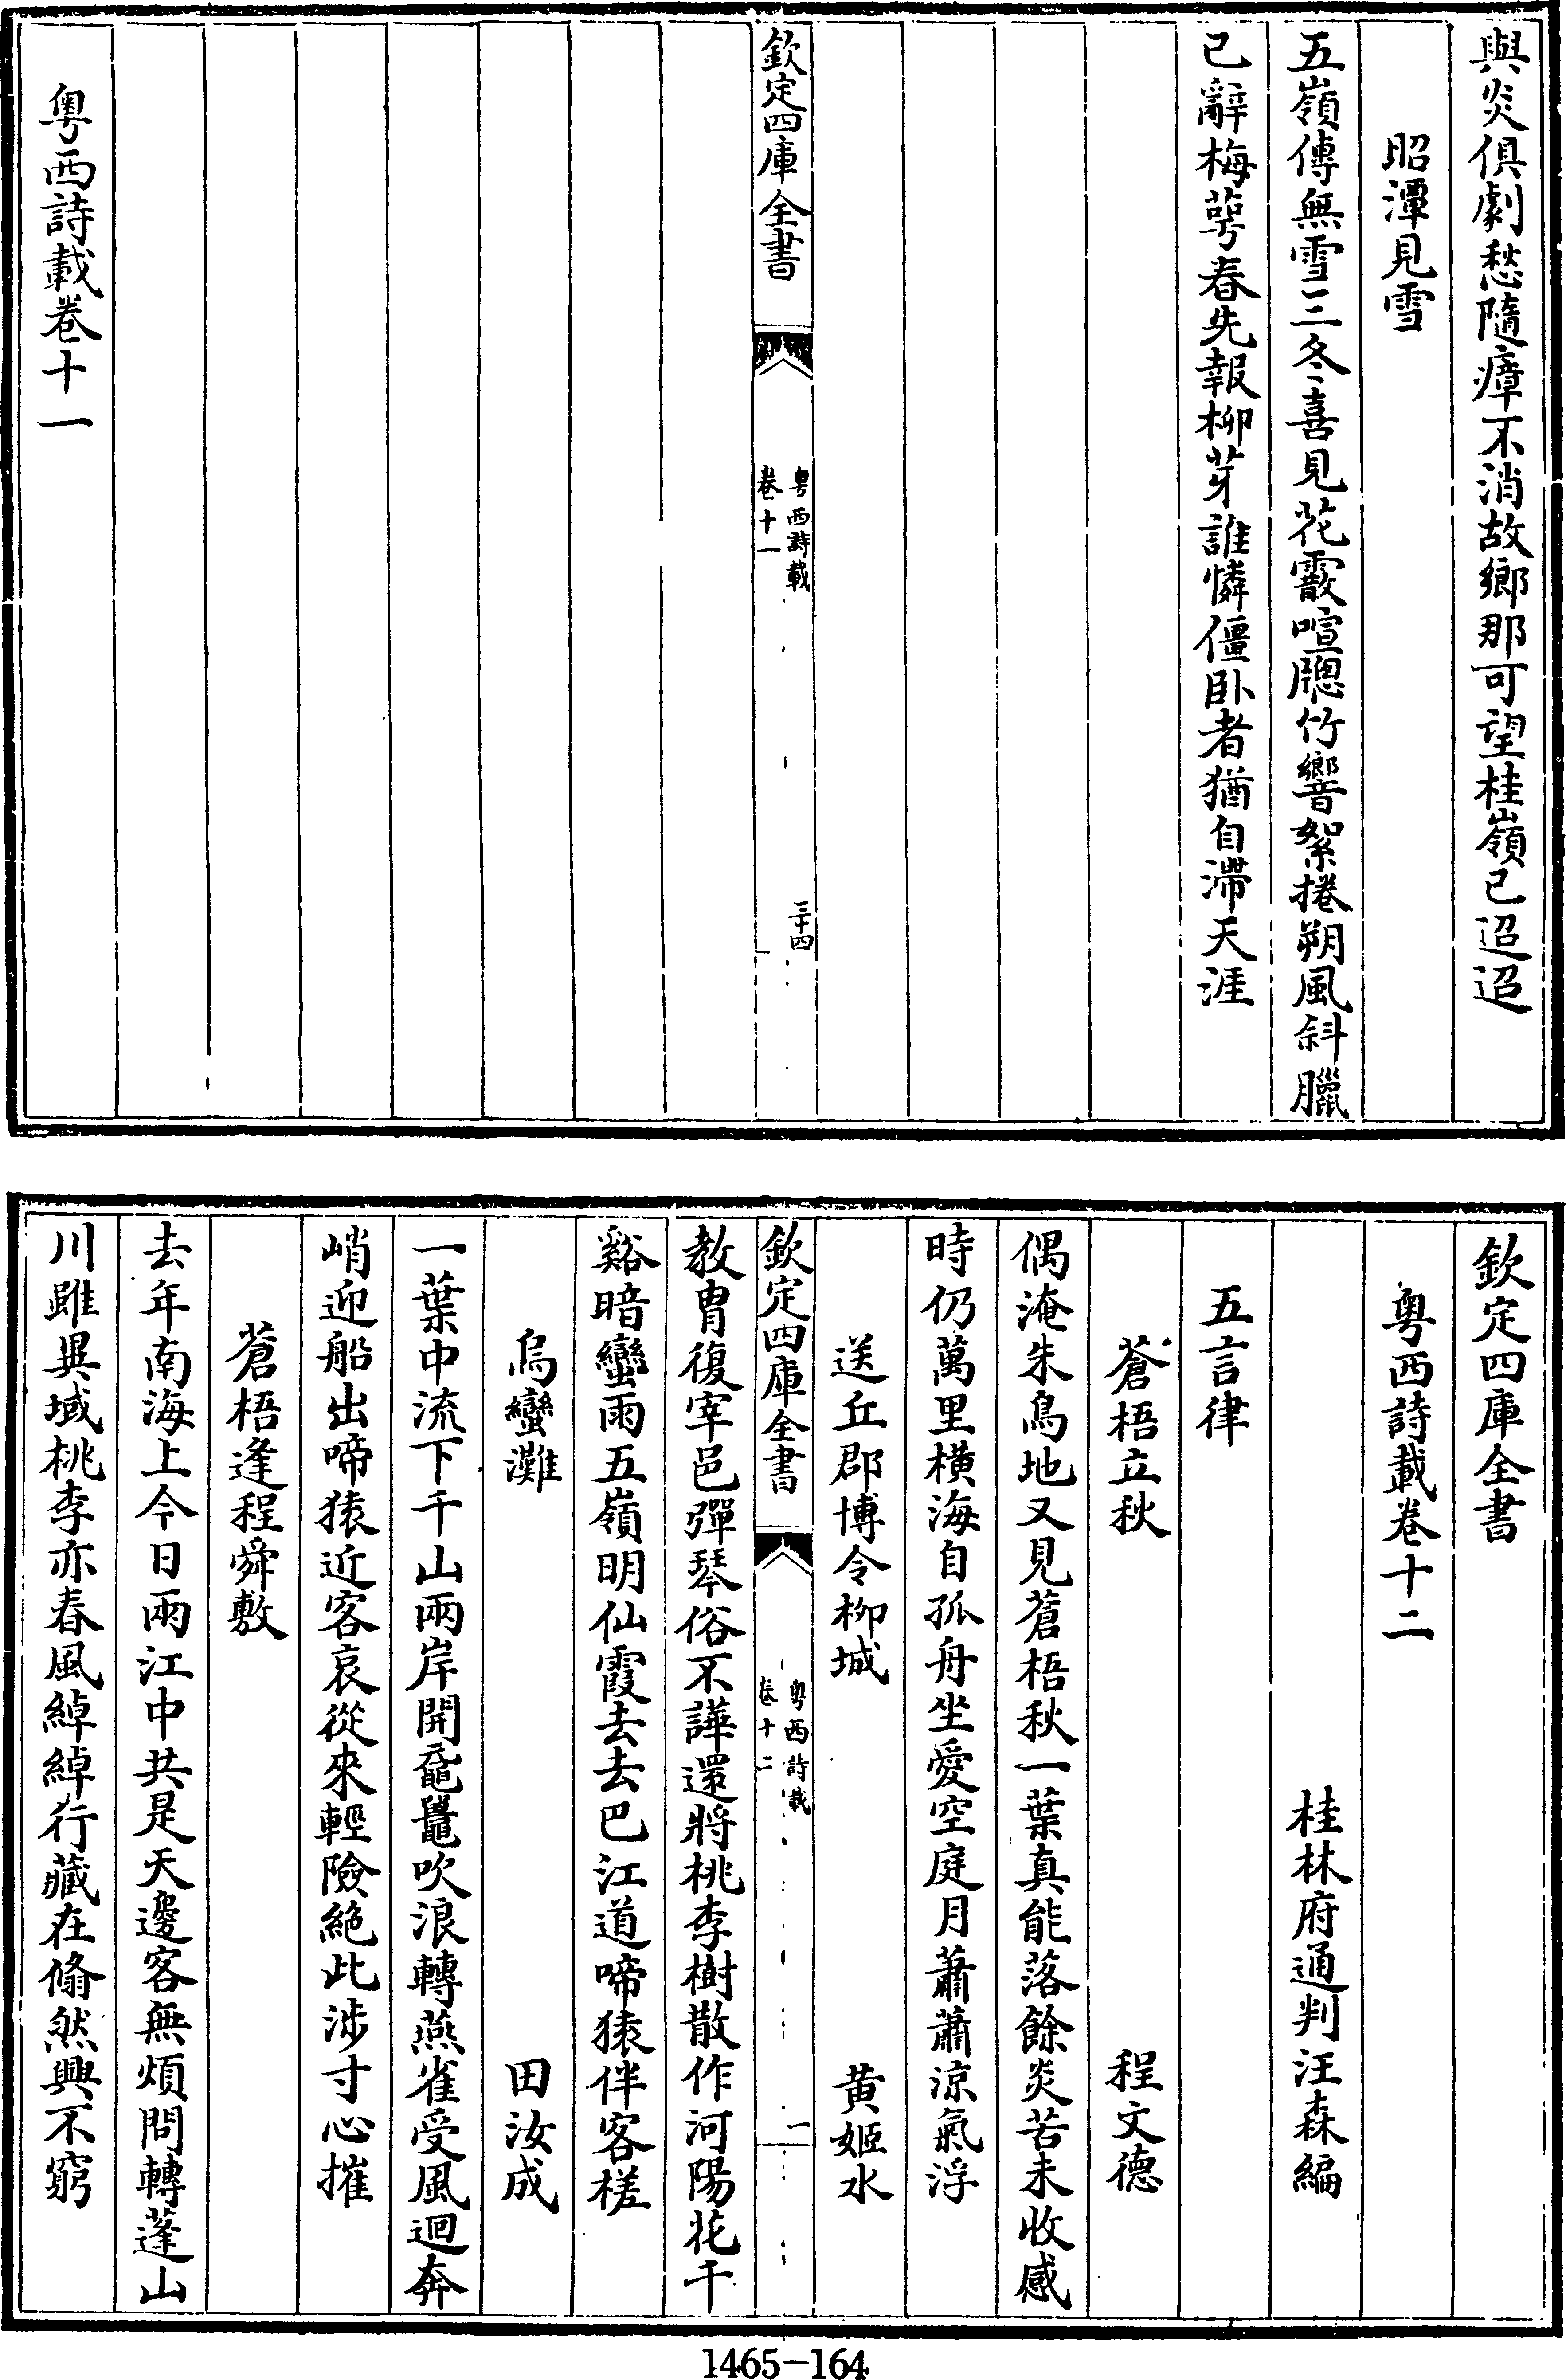 與炎俱劇愁隨瘴不消故鄉那可望桂嶺已迢迢
昭潭見雪
五嶺傳無雪三冬喜見花霰喧牎竹響絮捲朔風斜臘
已辭梅萼春先報柳芽誰憐僵卧者猶自滯天涯
欽定四庫全書
粤西詩載
卷十一
三十四
粤西詩載卷十一
欽定四庫全書
粤西詩載卷十二
桂林府通判汪森編
五言律
蒼梧立秋 程文德
偶淹朱鳥地又見蒼梧秋一葉真能落餘炎苦未收感
時仍萬里橫海自孤舟坐愛空庭月蕭蕭涼氣浮
送丘郡博令柳城 黄姬水
欽定四庫全書
粤西詩載
卷十二
一
教胄復宰邑彈琴俗不譁還將桃李樹散作河陽花千
谿暗蠻雨五嶺明仙霞去去巴江道啼猿伴客槎
烏蠻灘 田汝成
一葉中流下千山兩岸開黿鼉吹浪轉燕雀受風迴奔
峭迎船出啼猿近客哀從來輕險絶此涉寸心摧
蒼梧逢程舜敷
去年南海上今日兩江中共是天邊客無煩問轉蓬山
川雖異域桃李亦春風綽綽行藏在翛然興不窮
1465-164